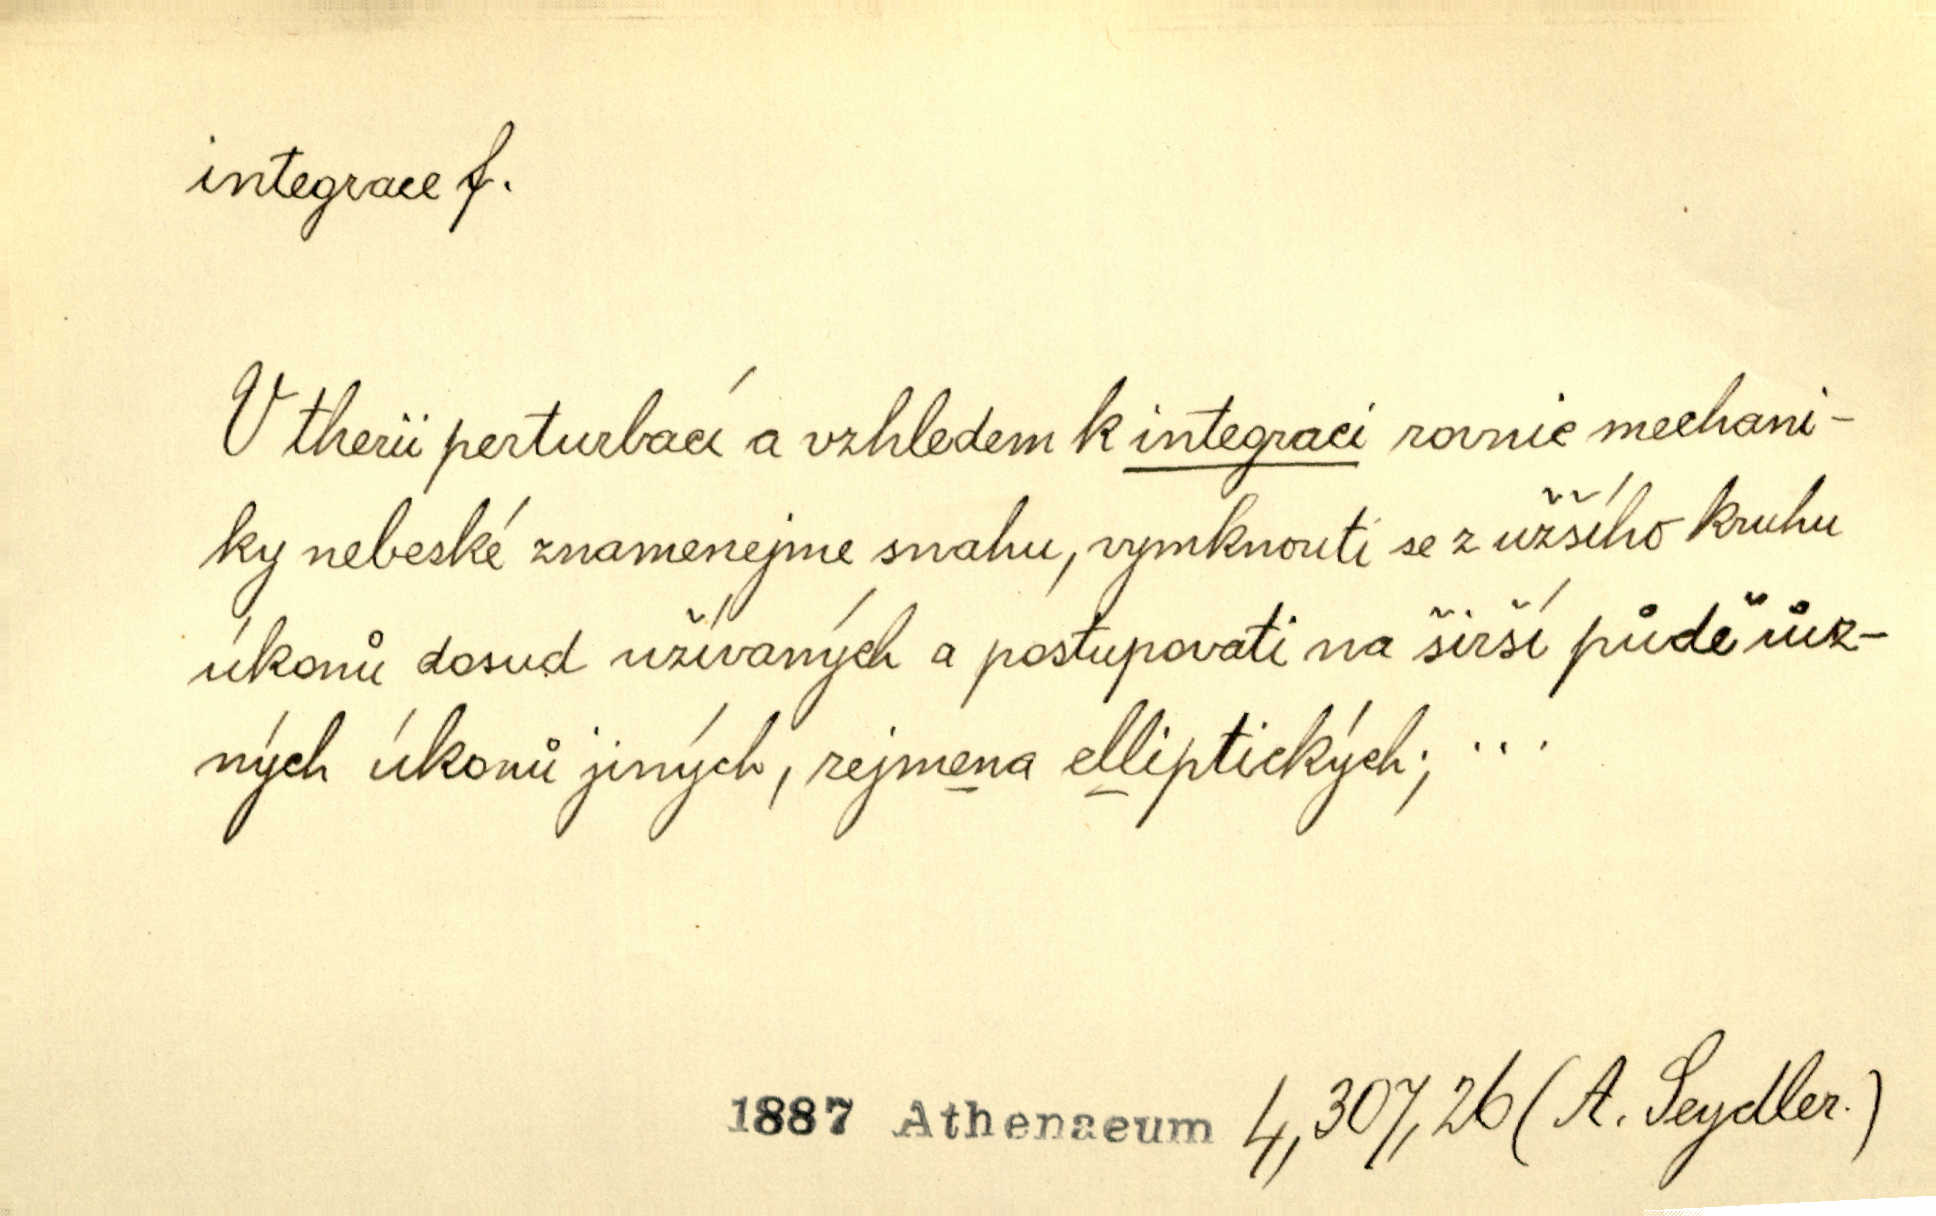 integrace f.
V therii perturbací a vzhledem k integraci rovnic mechani-
ky nebeské znamenejme snahu, vymknouti se z užšího kruhu
úkonů dosud užívaných a postupovati na širší půdě růz-
ných úkonů jiných, zejmena elliptických; ...
1887 Athenaeum 4,307,26 (A. Seydler.)